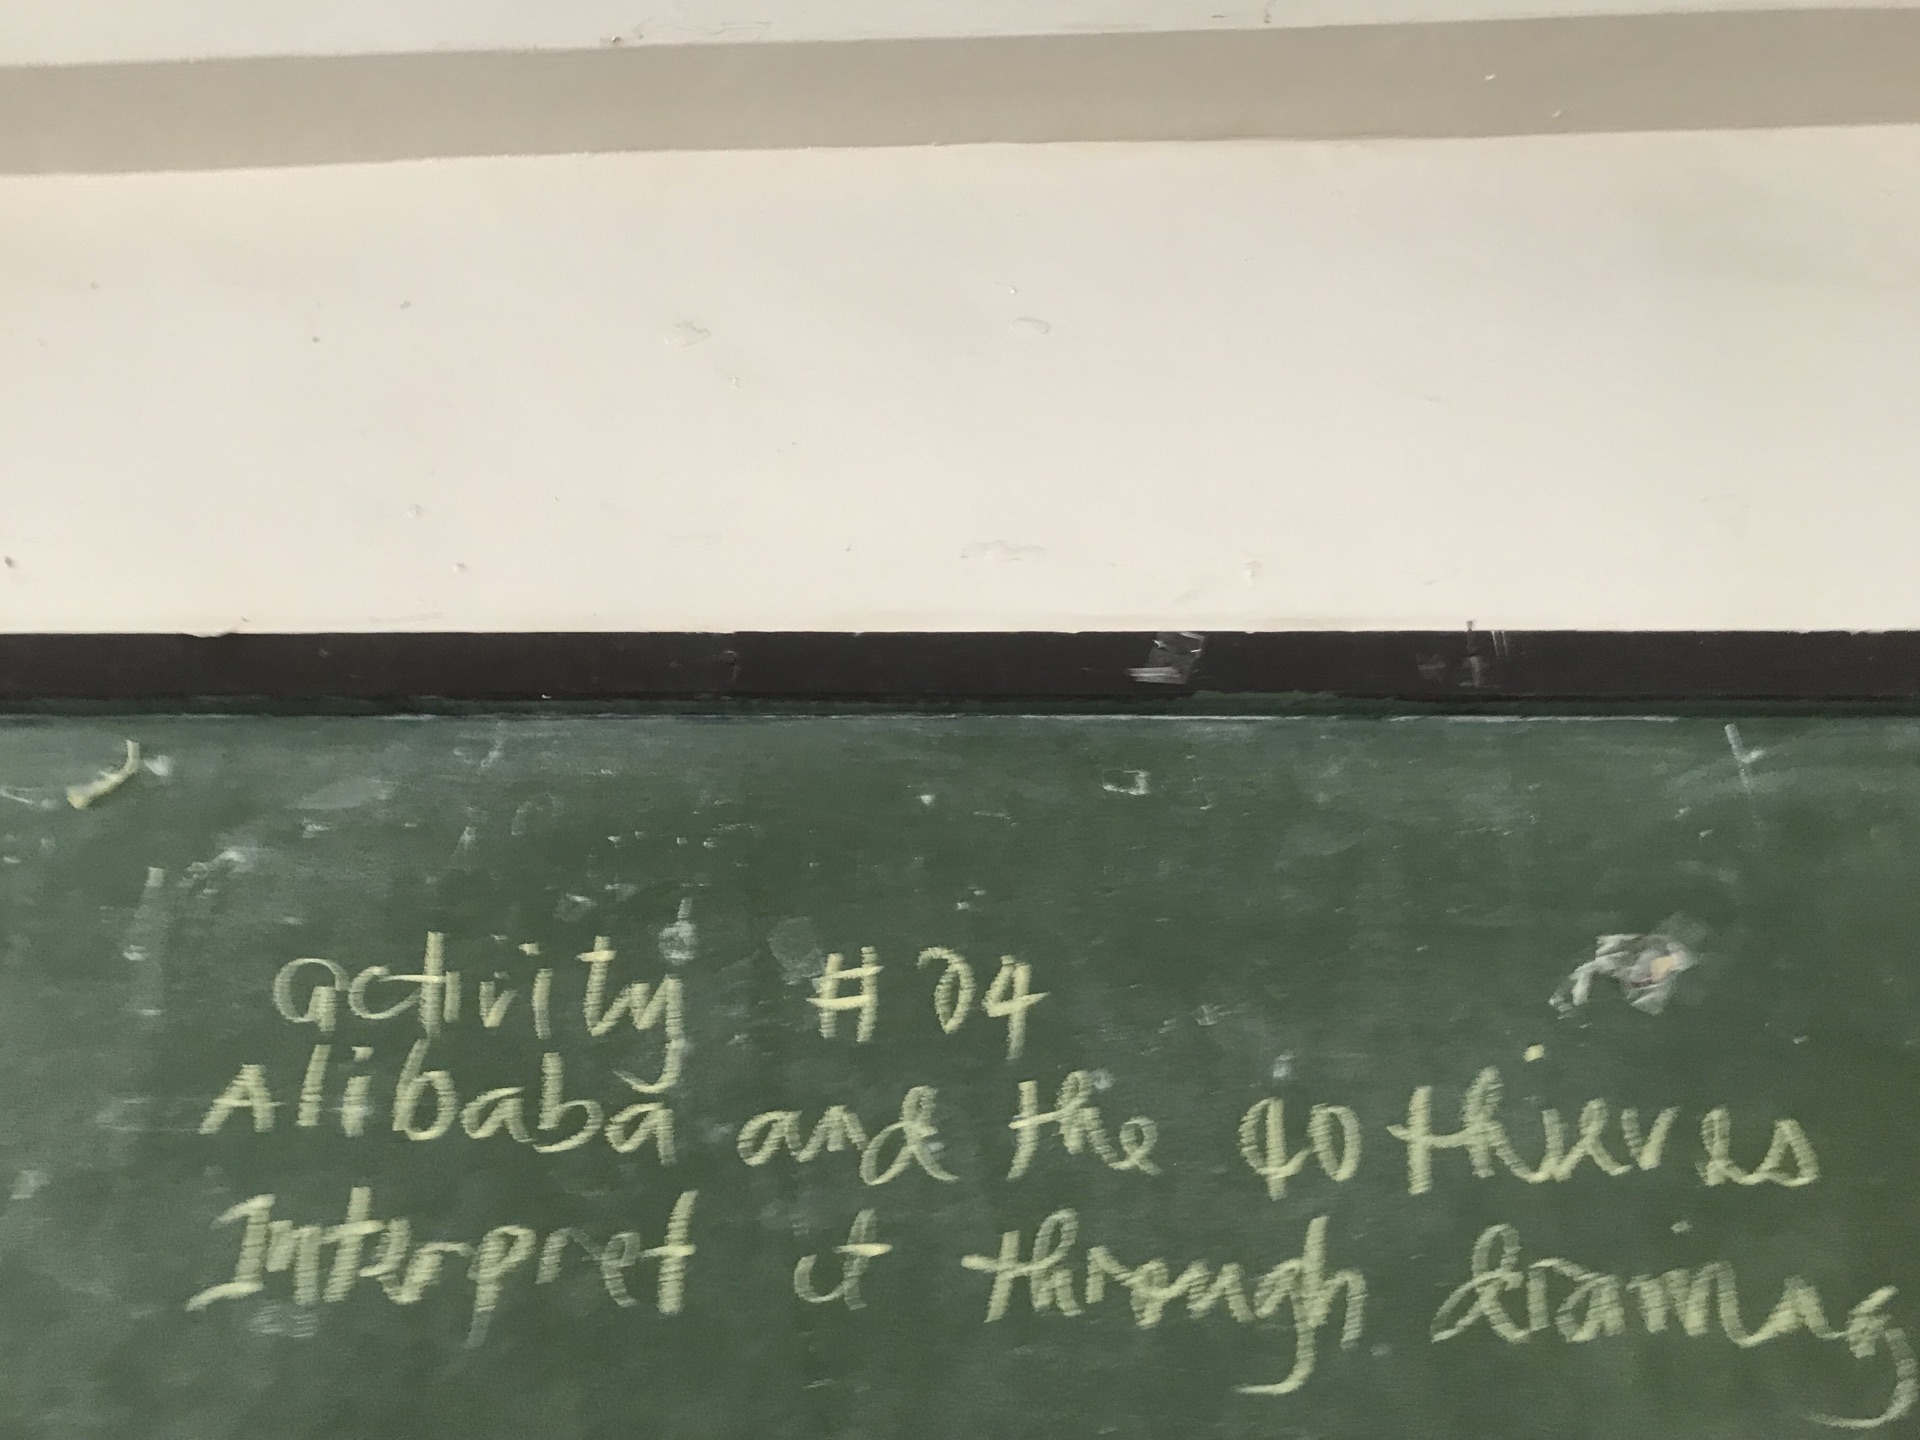 activity #04
Alibaba and the 40 thieves
Interpret it through drawing